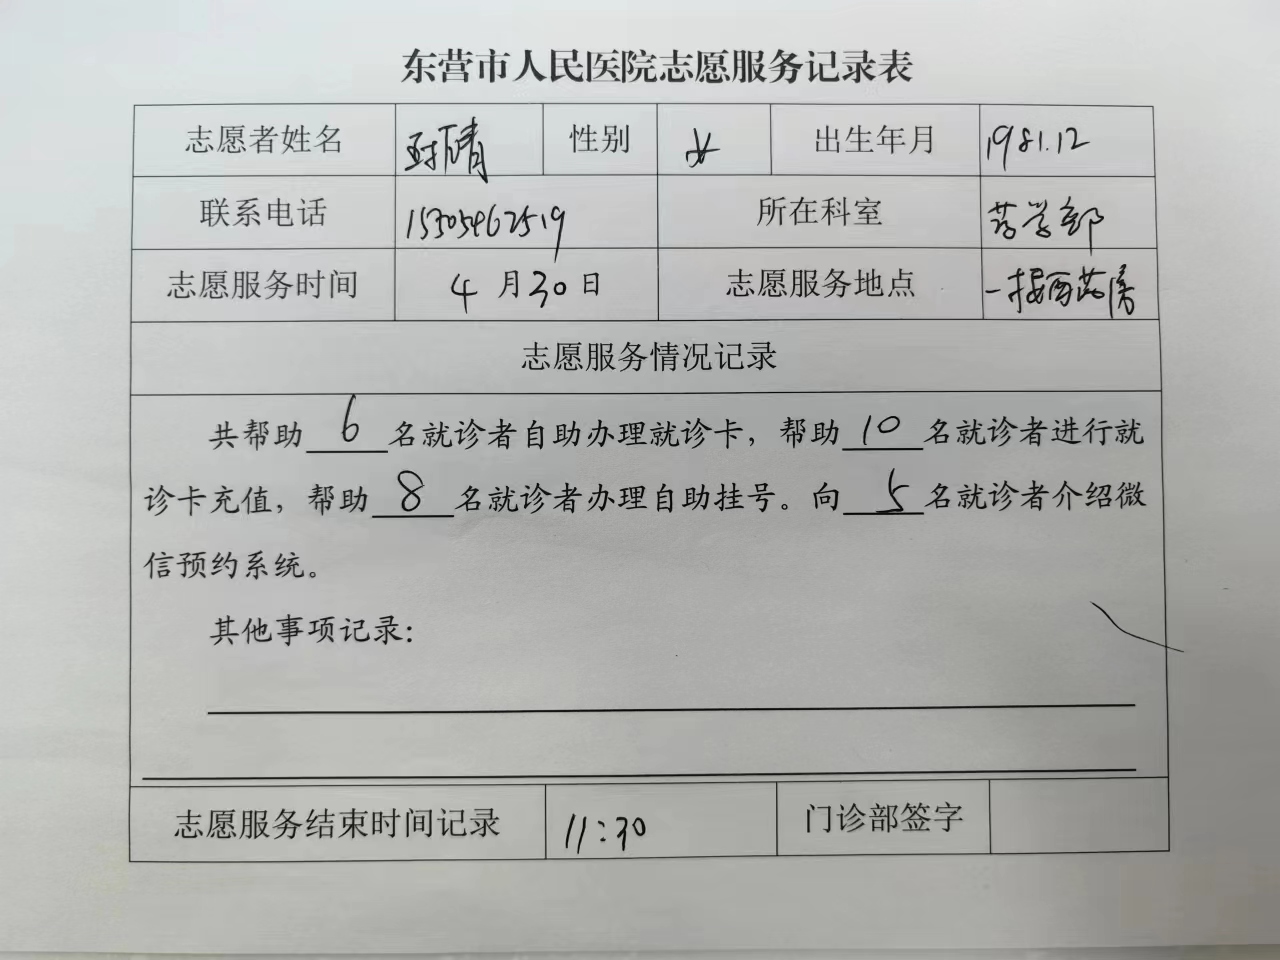 东营市人民医院志愿服务记录表
志愿者姓名 性别 女 出生年月 1981.12
联系电话 15305462519 所在科室 药学部
志愿服务时间 4月30日 志愿服务地点 一楼西药房
志愿服务情况记录
共帮助6名就诊者自助办理就诊卡，帮助10名就诊者进行就
诊卡充值，帮助8名就诊者办理自助挂号。向5名就诊者介绍微
信预约系统。
其他事项记录：
志愿服务结束时间记录 11:30 门诊部签字